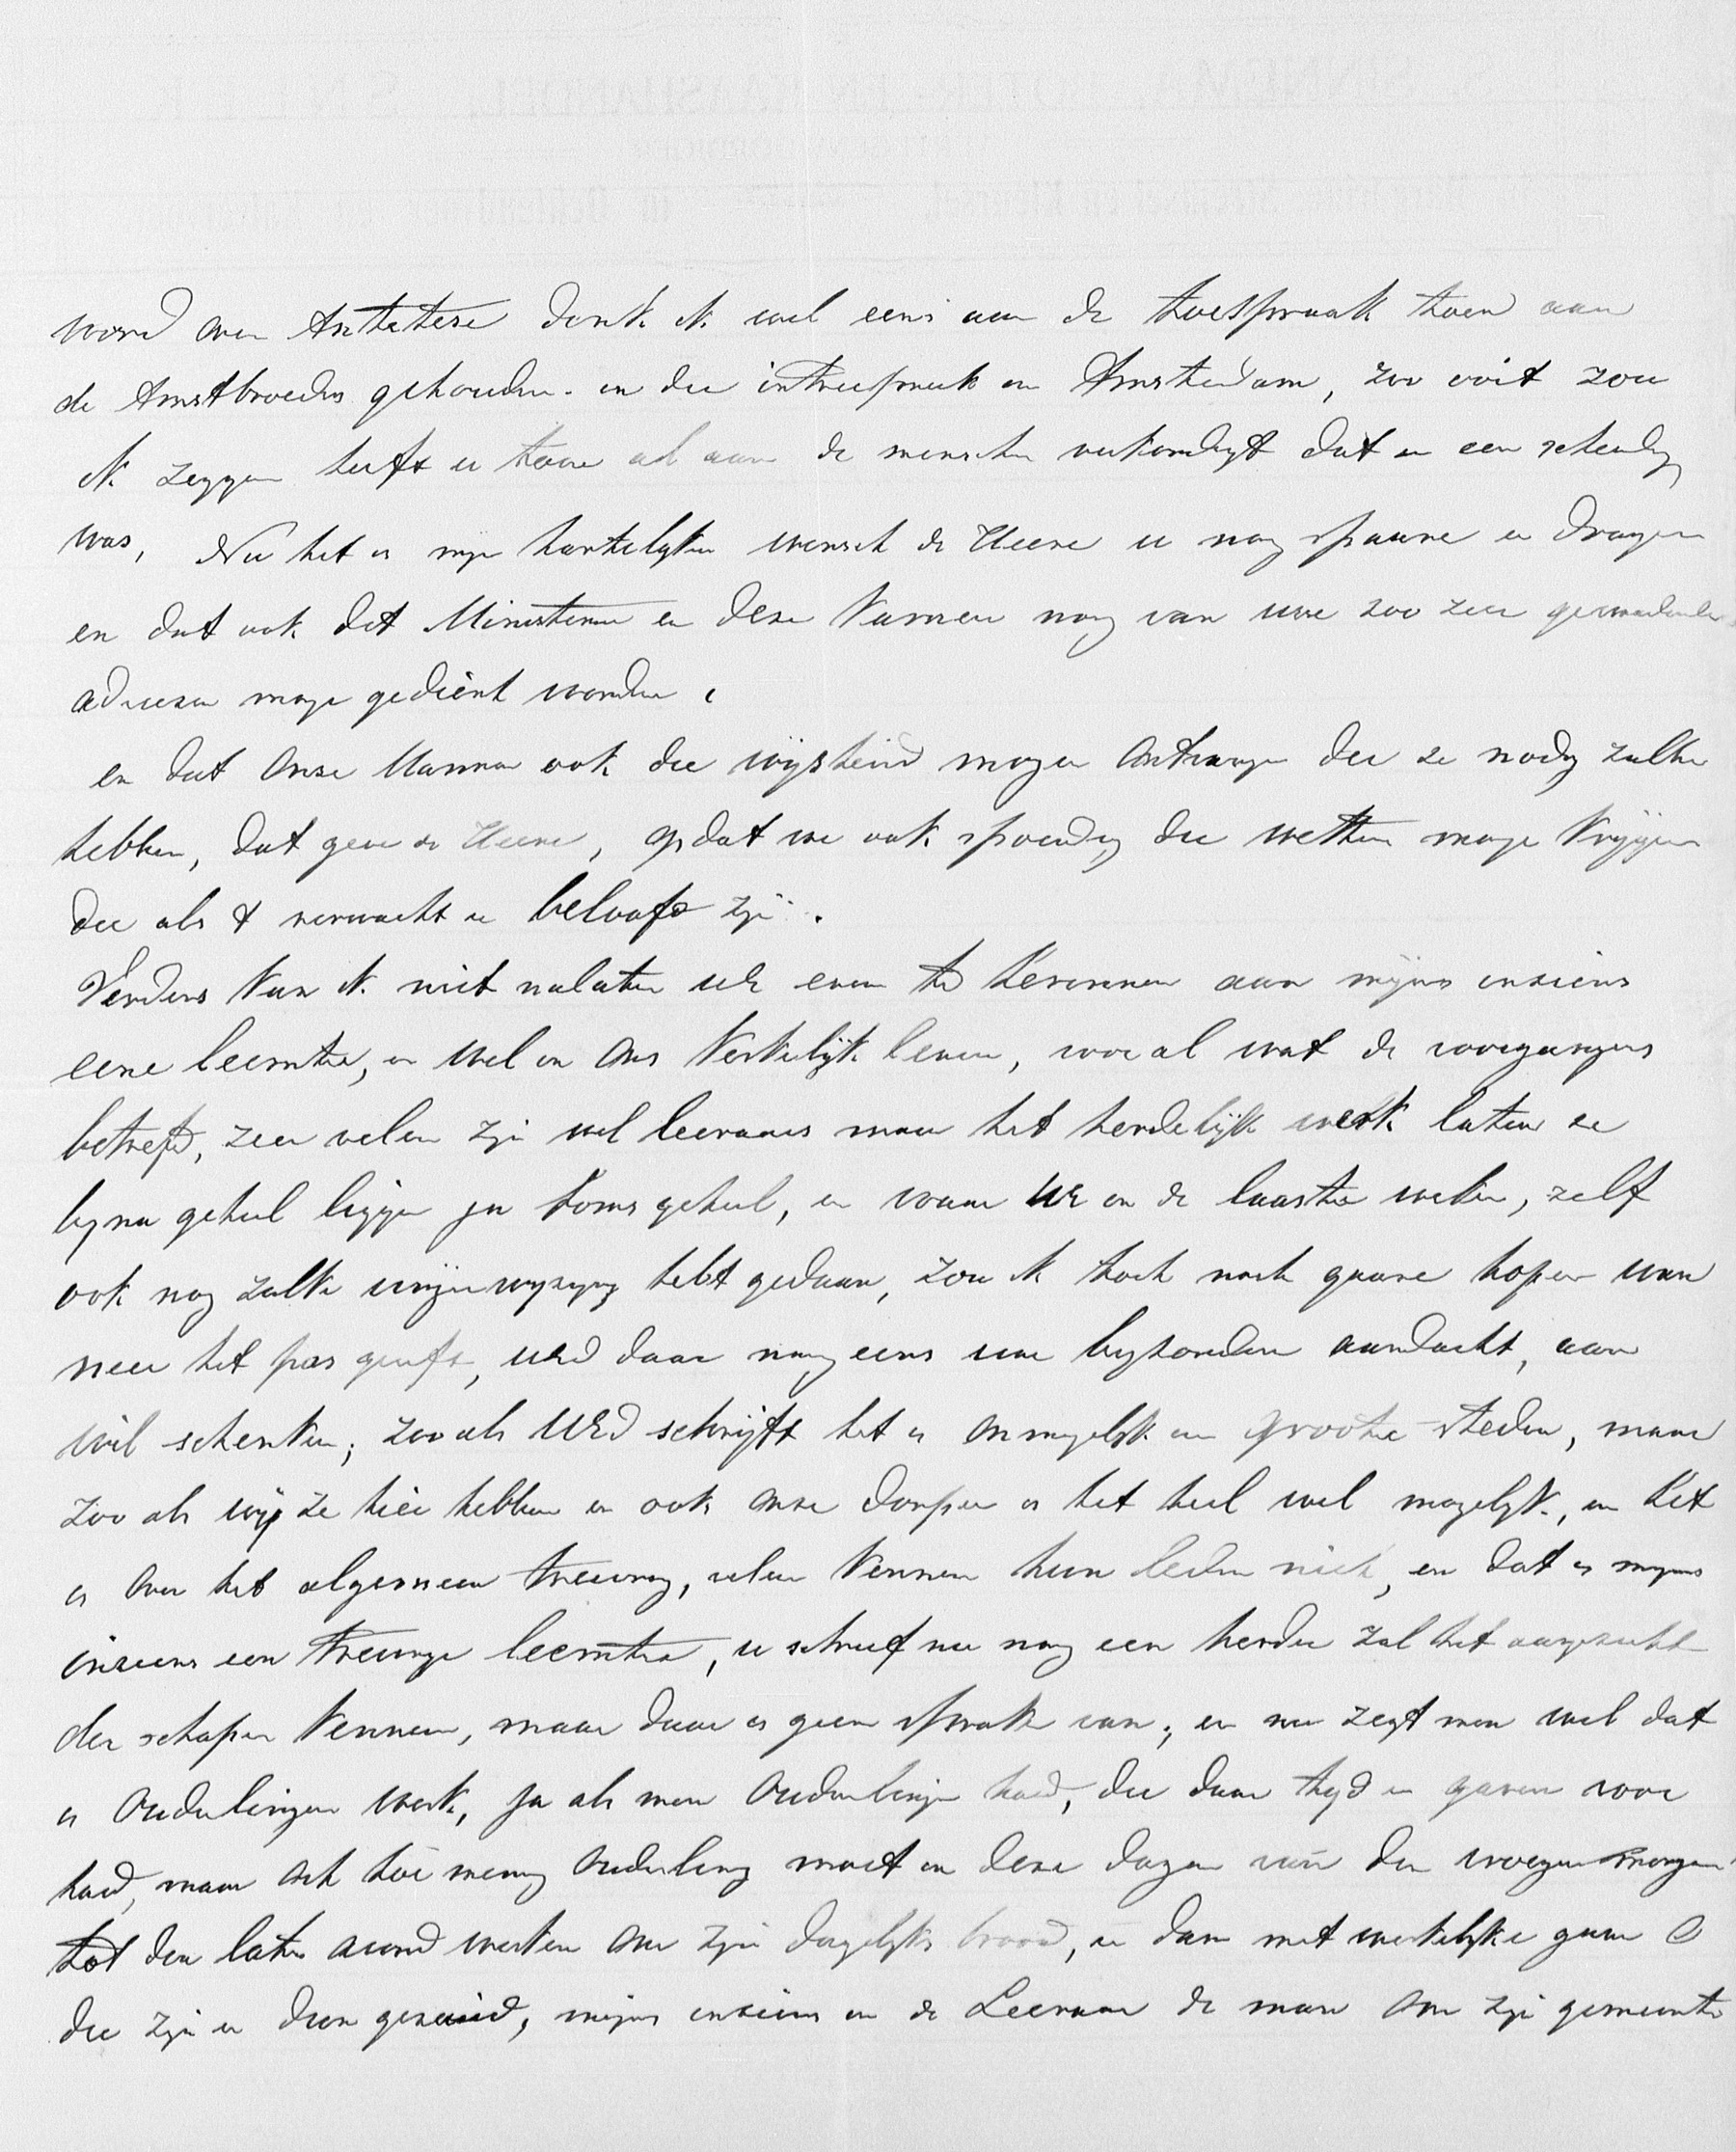 word over Antithese denk ik wel eens aan de toespraak toen aan
de Amstbroeders gehouden. en die intreepreek in Amsterdam, zoo ooit zou
ik zeggen heeft u toen al aan de menschen verkondigt dat er een scheiding
was, Nu het is mijn hartelijken wensch de Heere u nog spaare en drage
en dat ook dit Ministerie en deze Kamer nog van uwe zoo zeer gewaardeerde
adviezen moge gedient worden,
en dat onze Mannen ook die wijsheid mogen ontvangen die ze nodig zullen
hebben, dat geve de Heere, opdat we ook spoedig die wetten moge krijgen
die als t verwacht en beloofd zijn.
Verders kan ik niet nalaten UE even te herinneren aan mijns inziens
eene leemte, en wel in ons Kerkelijk leven, voor al wat de voorgangers
betreft, zeer velen zijn wel leeraars maar het herdelijk werk laten ze
bijna geheel liggen ja soms geheel, en waar UE in de laatste weken, zelf
ook nog zulke vingerwijzing hebt gedaan, zou ik toch noch gaare hopen wan
neer het pas geeft, UEd daar nog eens uw byzondere aandacht, aan
wil schenken, zooals UEd schrijft het is onmogelijk in groote steden, maar
zoo als wij ze hier hebben en ook onze dorpen is het heel wel mogelijk, en het
is over het algemeen treurig, velen kennen hun leden niet, en dat is mijns
inziens een treurige leemte, u schreef nu nog een herder zal het aangezicht
der schapen kennen, maar daar is geen spraak van, en nu zegt men wel dat
is Ouderlingen werk, ja als men Ouderlingen had, die daar tyd en gaven voor
had, maar och hoe menig Ouderling moet in deze dagen van den vroegen morgen
tot den laten avond werken om zijn dagelijks brood, en dan met werkelijke gaven O
die zijn er dun gezaaid, mijns inziens is de Leeraar de man om zijn gemeente